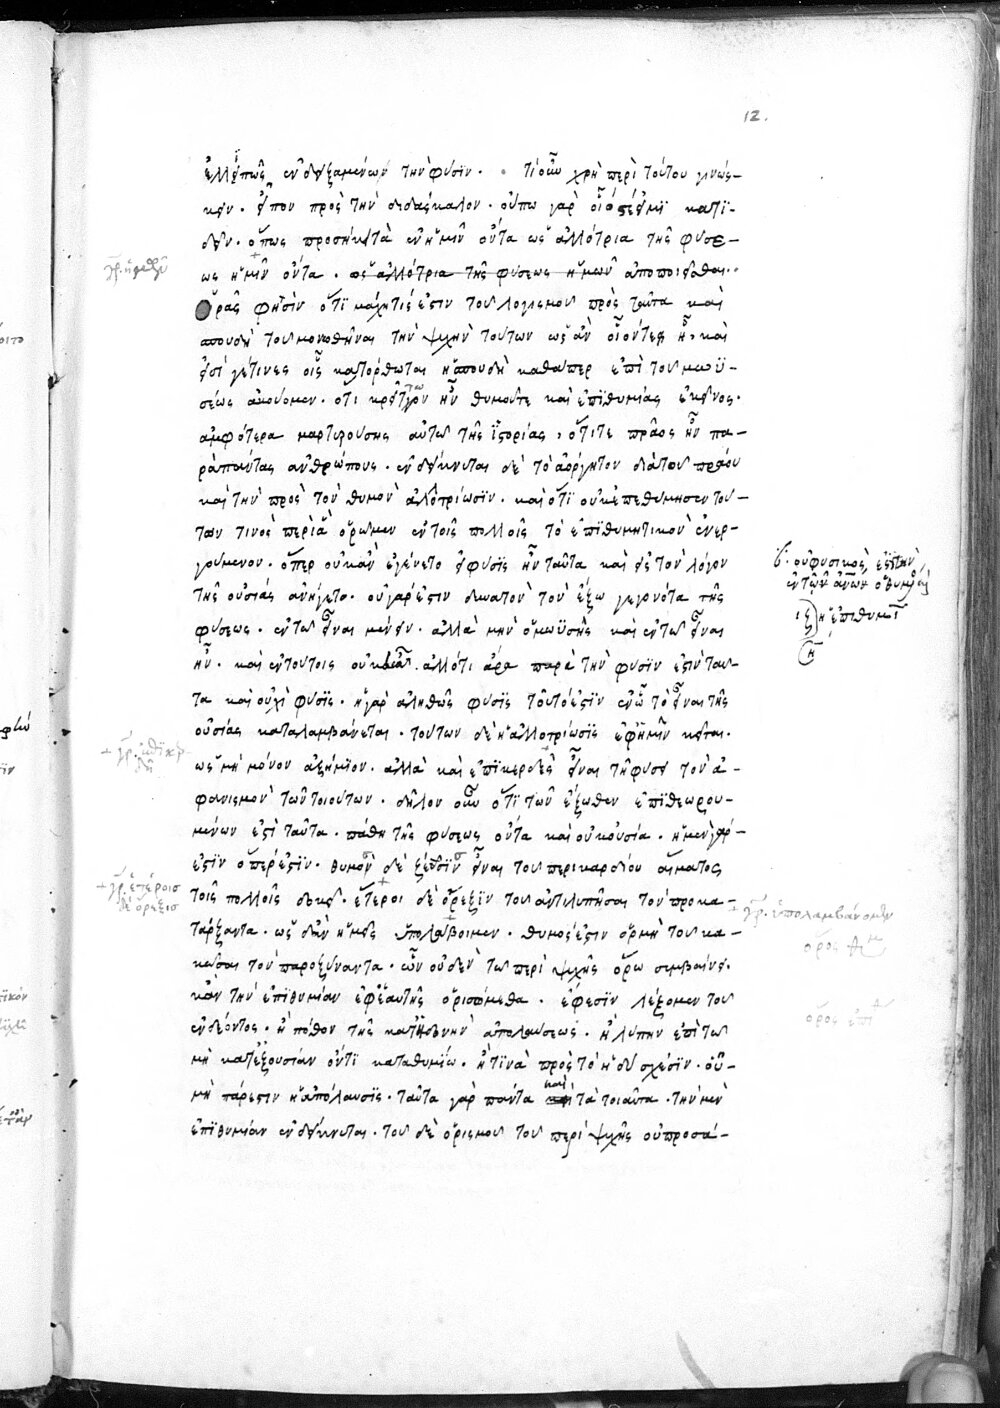 12.
ἐλλιπῶς ἐνδειξαμένων τὴν φύσιν · τί οὖν χρὴ περὶ τούτου γινώσ-
κειν · εἶπον πρὸς τὴν διδάσκαλον · οὔπω γὰρ οἷός τέ εἰμι κατι-
δεῖν · ὅπως προσήκει τὰ ἐν ἡμῖν ὄντα ὡς ἀλλότρια τῆς φύσε-
ως ἡμῖν ὄντα · ὡς ἀλλότρια τῆς φύσεως ἡμῶν ἀποποιεῖσθαι ··
Ὁρᾷς φησὶν ὅτι μάχη τίς ἐστιν τοῦ λογισμοῦ πρὸς ταῦτα καὶ
σπουδὴ τοῦ μονωθῆναι τὴν ψυχὴν τούτων ὡς ἂν οἷόν τε ᾖ, καὶ
εἰσί γέ τινες οἷς κατόρθωται ἡ σπουδὴ καθάπερ ἐπὶ τοῦ μωϋ-
σέως ἀκούομεν · ὅτι κρείττων ἦν θυμοῦ τε καὶ ἐπιθυμίας ἐκεῖνος ·
ἀμφότερα μαρτυρούσης αὐτῷ τῆς ἱστορίας, ὅτι τε πρᾶος ἦν πα-
ρὰ πάντας ἀνθρώπους · ἐνδείκνυται δὲ τὸ ἀόργητον διὰ τοῦ πράου
καὶ τὴν πρὸς τὸν θυμὸν ἀλλοτρίωσιν · καὶ ὅτι οὐκ ἐπεθύμησεν τού-
των τινὸς περὶ ἃ ὁρῶμεν ἐν τοῖς πολλοῖς τὸ ἐπιθυμητικὸν ἐνερ-
γούμενον · ὅπερ οὐκ ἂν ἐγένετο εἰ φύσις ἦν ταῦτα καὶ εἰς τὸν λόγον
τῆς οὐσίας ἀνήγετο · οὐ γάρ ἐστιν δυνατὸν τὸν ἔξω γεγονότα τῆς
φύσεως · ἐν τῷ εἶναι μένειν · ἀλλὰ μὴν ὁ μωϋσῆς καὶ ἐν τῷ εἶναι
ἦν · καὶ ἐν τούτοις οὐκ ἦν · ἄλλό τι ἄρα παρὰ τὴν φύσιν ἐστὶν ταῦ-
τα καὶ οὐχὶ φύσις · ἡ γὰρ ἀληθῶς φύσις τοῦτό ἐστιν ἐν ᾧ τὸ εἶναι τῆς
οὐσίας καταλαμβάνεται · τούτων δὲ ἡ ἀλλοτρίωσις ἐφ' ἡμῖν κεῖται ·
ὡς μὴ μόνον ἀζήμιον · ἀλλὰ καὶ ἐπικερδὲς εἶναι τῇ φύσει τὸν ἀ-
φανισμὸν τῶν τοιούτων · δῆλον οὖν ὅτι τῶν ἔξωθεν ἐπιθεωρου-
μένων ἐστὶ ταῦτα · πάθη τῆς φύσεως ὄντα καὶ οὐκ οὐσία · ἡ μὲν γάρ
ἐστιν ὅπερ ἐστίν · θυμὸν δὲ ζέσιν εἶναι τοῦ περικαρδίου αἵματος
τοῖς πολλοῖς δοκεῖ · ἕτεροι δὲ ὄρεξιν τοῦ ἀντιλυπῆσαι τὸν προκα-
τάρξαντα · ὡς δ' ἂν ἡμεῖς ὑπολάβοιμεν · θυμός ἐστιν ὁρμὴ τοῦ κα-
κῶσαι τὸν παροξύναντα · ὧν οὐδὲν τῷ περὶ ψυχῆς ὅρῳ συμβαίνει ·
κἂν τὴν ἐπιθυμίαν ἐφ' ἑαυτῆς ὁρισώμεθα · ἔφεσιν λέξομεν τοῦ
ἐνδέοντος · ἢ πόθον τῆς καθ' ἡδονὴν ἀπολαύσεως · ἢ λύπην ἐπὶ τῷ
μὴ κατ' ἐξουσίαν ὄντι καταθυμίῳ · ἤ τινα πρὸς τὸ ἡδὺ σχέσιν · οὗ
μὴ πάρεστιν ἡ ἀπόλαυσις · ταῦτα γὰρ πάντα καὶ τὰ τοιαῦτα · τὴν μὲν
ἐπιθυμίαν ἐνδείκνυται · τοῦ δὲ ὁρισμοῦ τοῦ περὶ ψυχῆς οὐ προσά-
+ γρ. ἑτέροις
δὲ ὄρεξις
+ γρ. ὑπολαμβάνομεν
ὅρος
ὅρος ἐπι